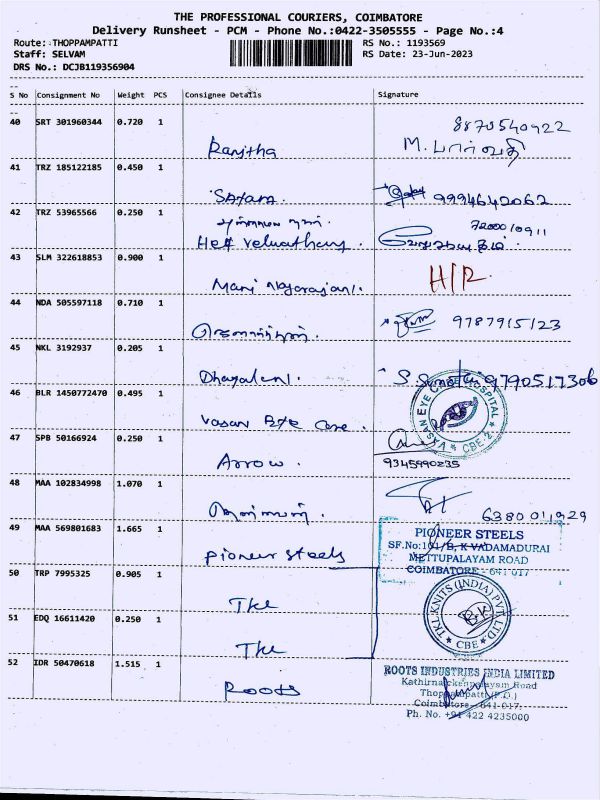 THE PROFESSIONAL COURIERS, COIMBATORE
Delivery Runsheet - PCM - Phone No.:0422-3505555 - Page No.:4
Route: THOPPAMPATTI RS No.: 1193569
Staff: SELVAM RS Date: 23-Jun-2023
DRS No.: DCJB119356904
S No Consignment No Weight PCS Consignee Details Signature
40 SRT 301960344 0.720 1
8870540922
Ranjtha M. பார்வதி
41 TRZ 185122185 0.450 1
9994642062
42 TRZ 53965566 0.250 1
7200010911
43 SLM 322618853 0.900 1
Mani H/R
44 NDA 505597118 0.710 1
9787915123
45 NKL 3192937 0.205 1
9790517306
46 BLR 1450772470 0.495 1
Vasan Eye Care VASAN EYE CARE HOSPITAL CBE-2
47 SPB 50166924 0.250 1
Arrow 9345990235
48 MAA 102834998 1.070 1
49 MAA 569801683 1.665 1
Pioneer Steels PIONEER STEELS
SF.No:101/B, K VADAMADURAI
METTUPALAYAM ROAD
COIMBATORE - 641 017
50 TRP 7995325 0.905 1
TKL TKL KNITS (INDIA) PVT LTD CBE
51 EDQ 16611420 0.250 1
TKL
52 IDR 50470618 1.515 1
ROOTS ROOTS INDUSTRIES INDIA LIMITED
Road
Thoppampatti (P.O.)
Coimbatore - 641 017.
Ph. No. +91 422 4235000